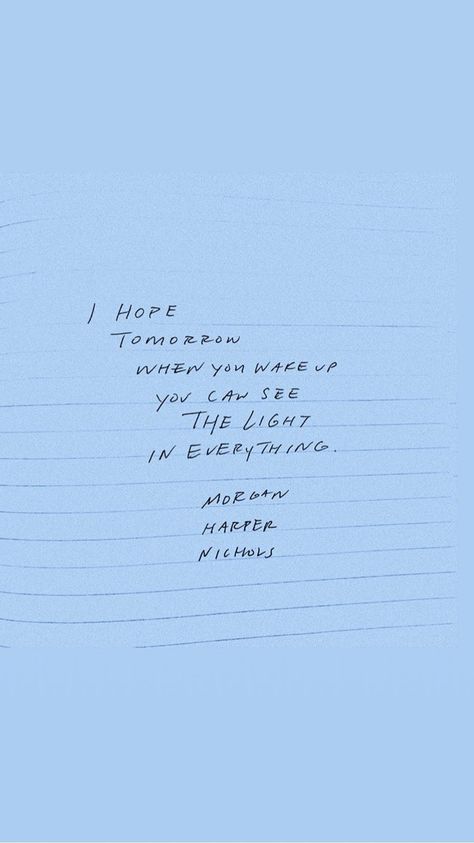 I HOPE
TOMORROW
WHEN YOU WAKE UP
YOU CAN SEE
THE LIGHT
IN EVERYTHING.
MORGAN
HARPER
NICHOLS